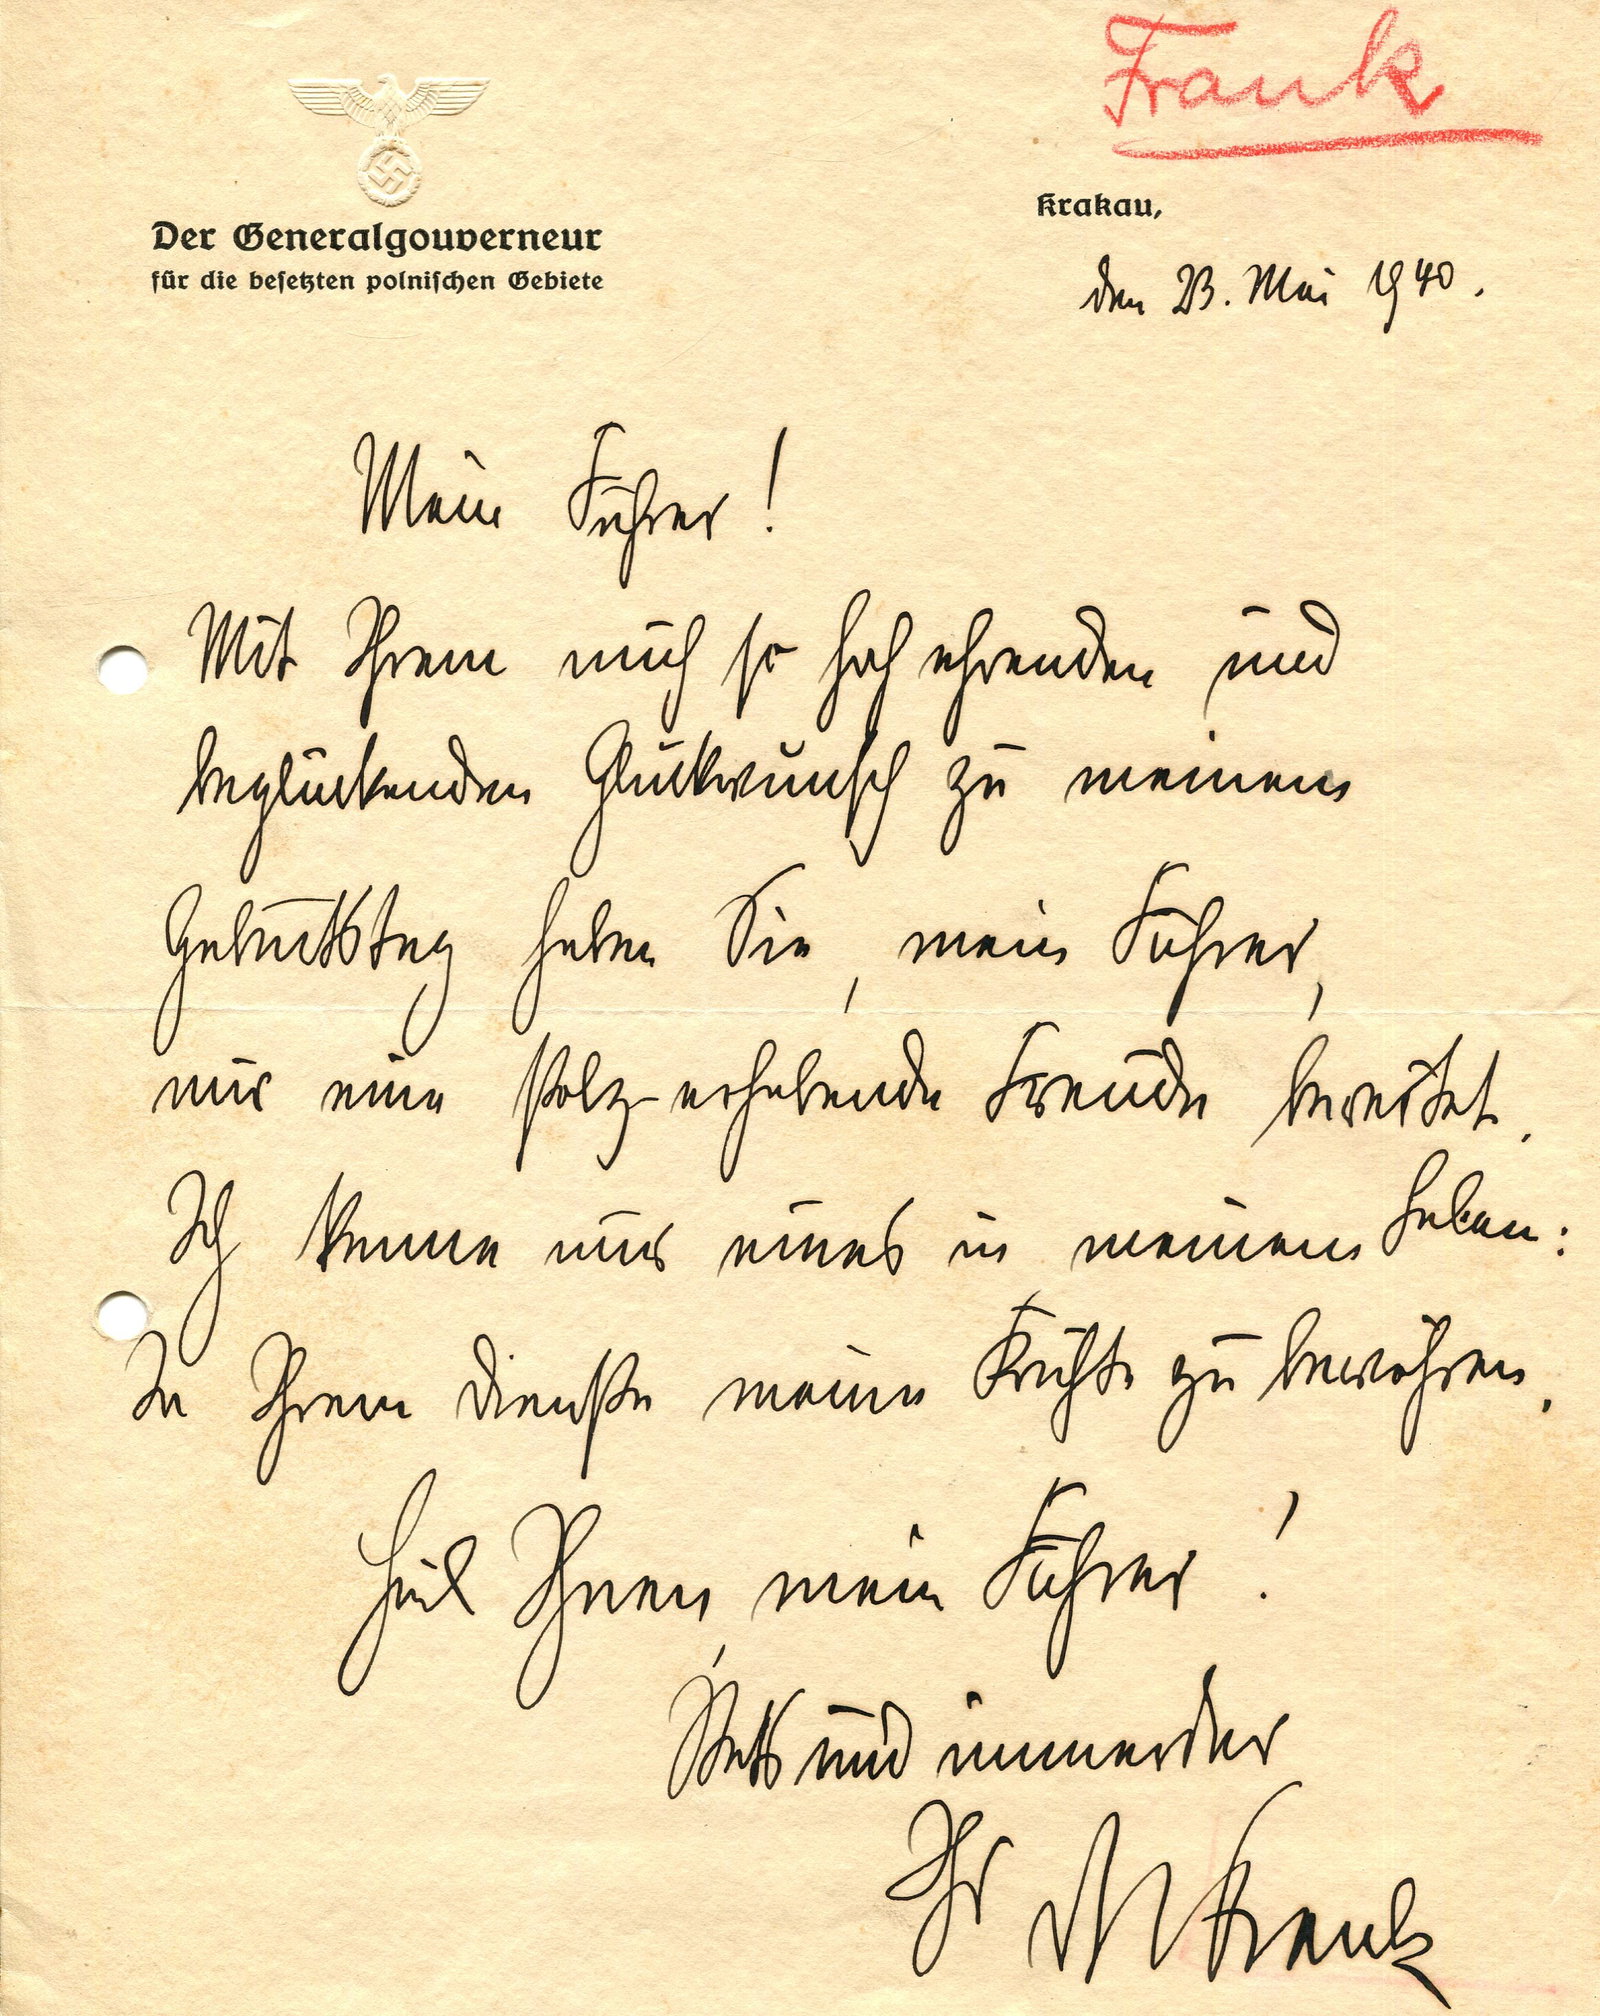 Frank
Der Generalgouverneur
für die besetzten polnischen Gebiete
Krakau,
den 23. Mai 1940.
Mein Führer!
Mit Ihrem mich so hoch ehrenden und
beglückenden Glückwunsch zu meinem
Geburtstag haben Sie, mein Führer,
mir eine stolz-erhebende Freude bereitet.
Ich kenne nur eines in meinem Leben:
In Ihrem Dienste meine Kräfte zu bewähren.
Heil Ihnen, mein Führer!
Stets und immerdar
Ihr Frank